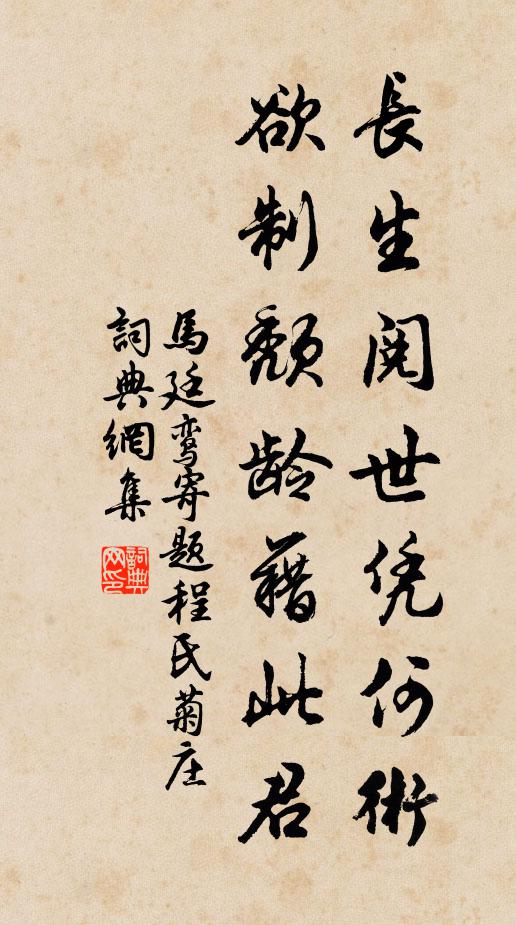 長生閱世凭何術
欲制颓龄藉此君
馬廷鸾寄题程氏菊庄
詞典網集
詞典网印